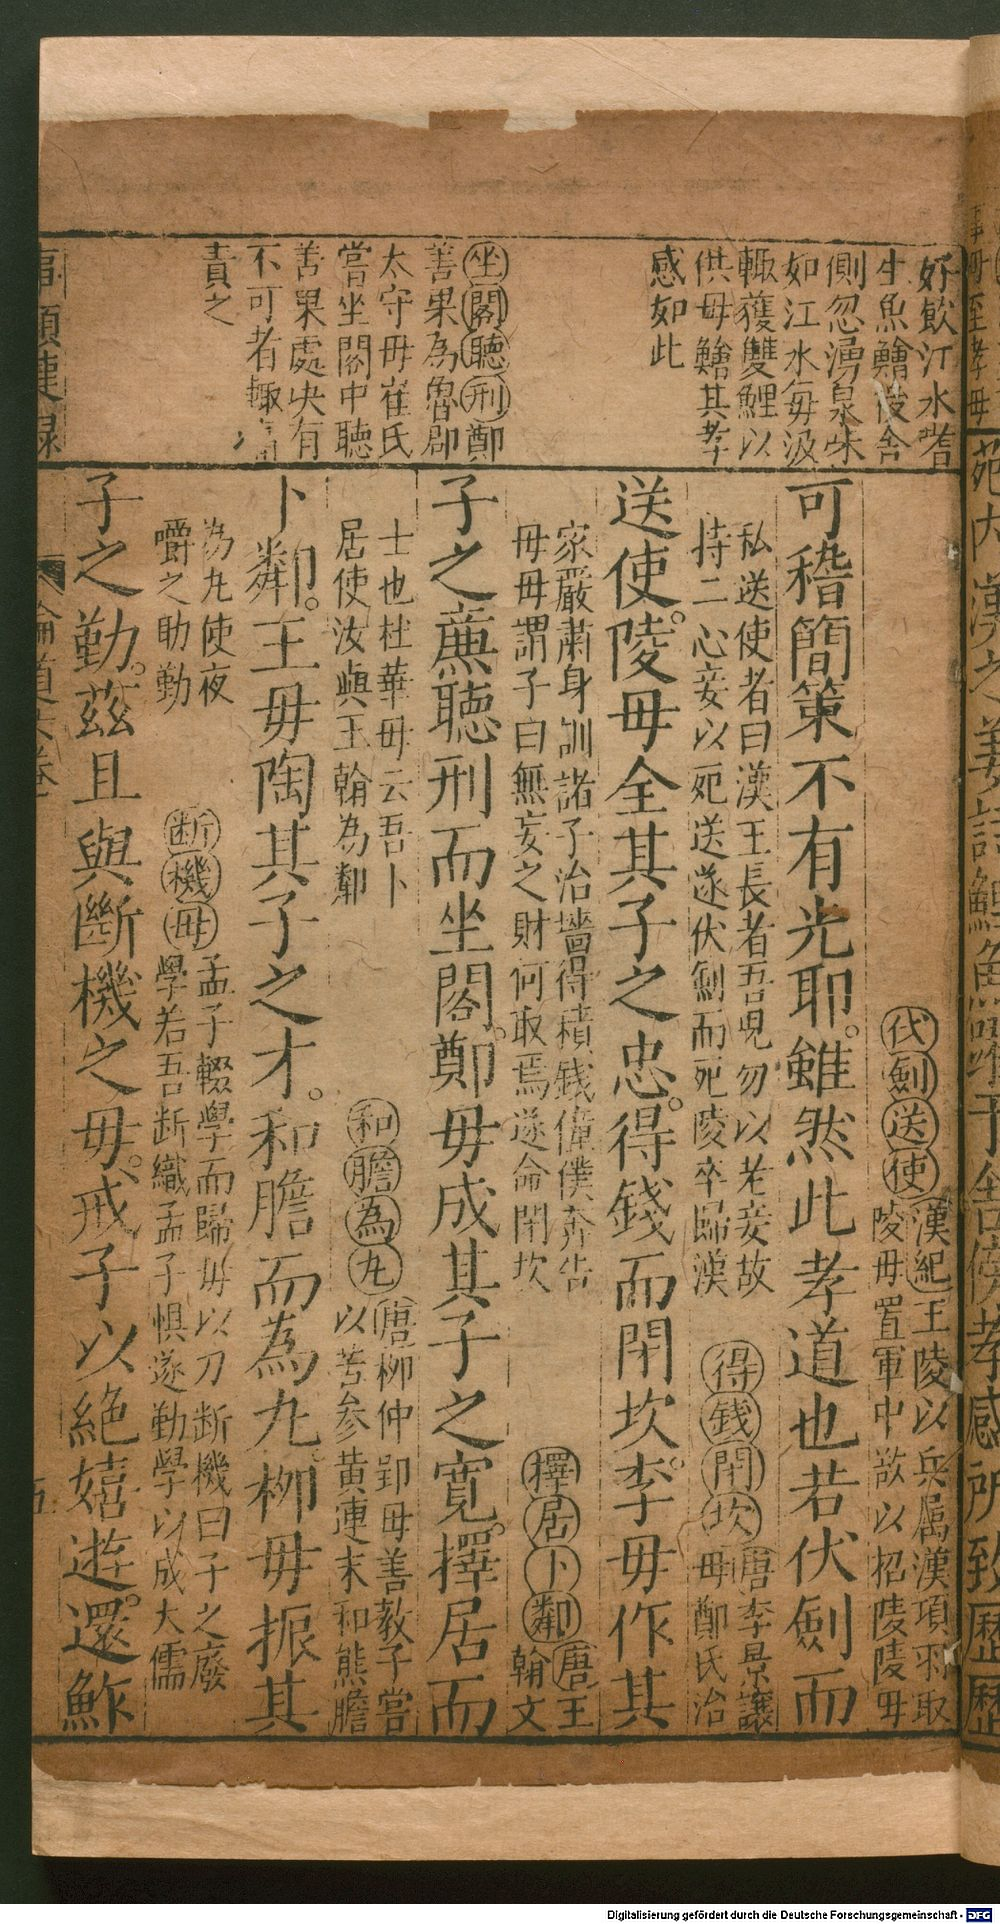 好飲江水嗜
生魚鱠俊舍
側忽湧泉味
如江水每汲
輒獲雙鯉以
供母鱠其孝
感如此
坐閣聽刑鄭
善果為魯郡
太守母崔氏
嘗坐閣中聽
善果處央有
不可者輒
責之
伏劍送使漢紀王陵以兵属漢項羽取
陵母置軍中欲以招陵陵母
可稽簡策不有光耶雖然此孝道也若伏劍而
私送使者曰漢王長者吾児勿以老妾故
持二心妾以死送遂伏劍而死陵卒歸漢
得錢閉坎唐李景讓
母鄭氏治
送使陵母全其子之忠得錢而閉坎李母作其
家嚴肅身訓諸子治墻得積錢僮僕奔告
母母謂子曰無妄之財何取焉遂命閉坎
擇居卜鄰唐王
翰文
子之亷聽刑而坐閣鄭母成其子之寛擇居而
士也杜華母云吾卜
居使汝與王翰為鄰
和膽為丸唐柳仲郢母善教子嘗
以苦参黄連末和熊膽
卜鄰王母陶其子之才和膽而為丸柳母振其
為丸使夜
嚼之助勤
断機母孟子輟學而歸母以刀断機曰子之廢
學若吾断織孟子惧遂勤學以成大儒
子之勤茲且與斷機之母戒子以絶嬉遊還鮓
五
Digitalisierung gefördert durch die Deutsche Forschungsgemeinschaft - DFG